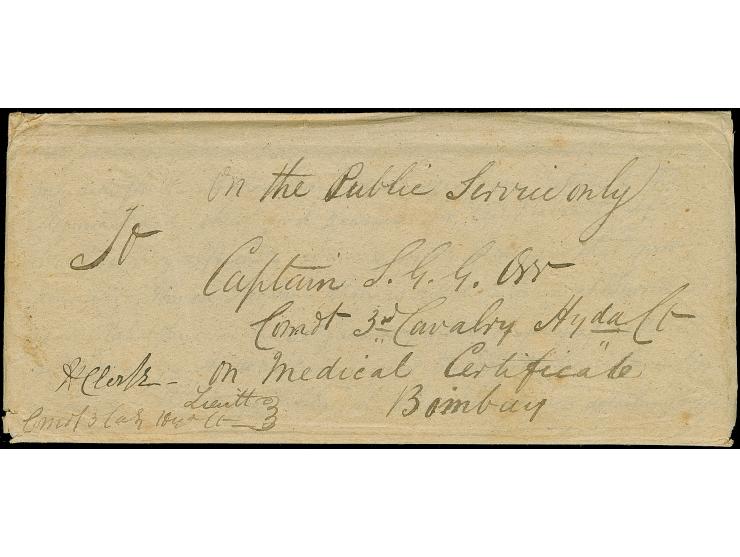 On the Public Service only
To
Captain S. G. G. Orr
Comdt 3rd Cavalry Hyda Ct
on Medical Certificate
Bombay
H Clerk
Lieutt
Comdt 3 Cavy Hyd Ct